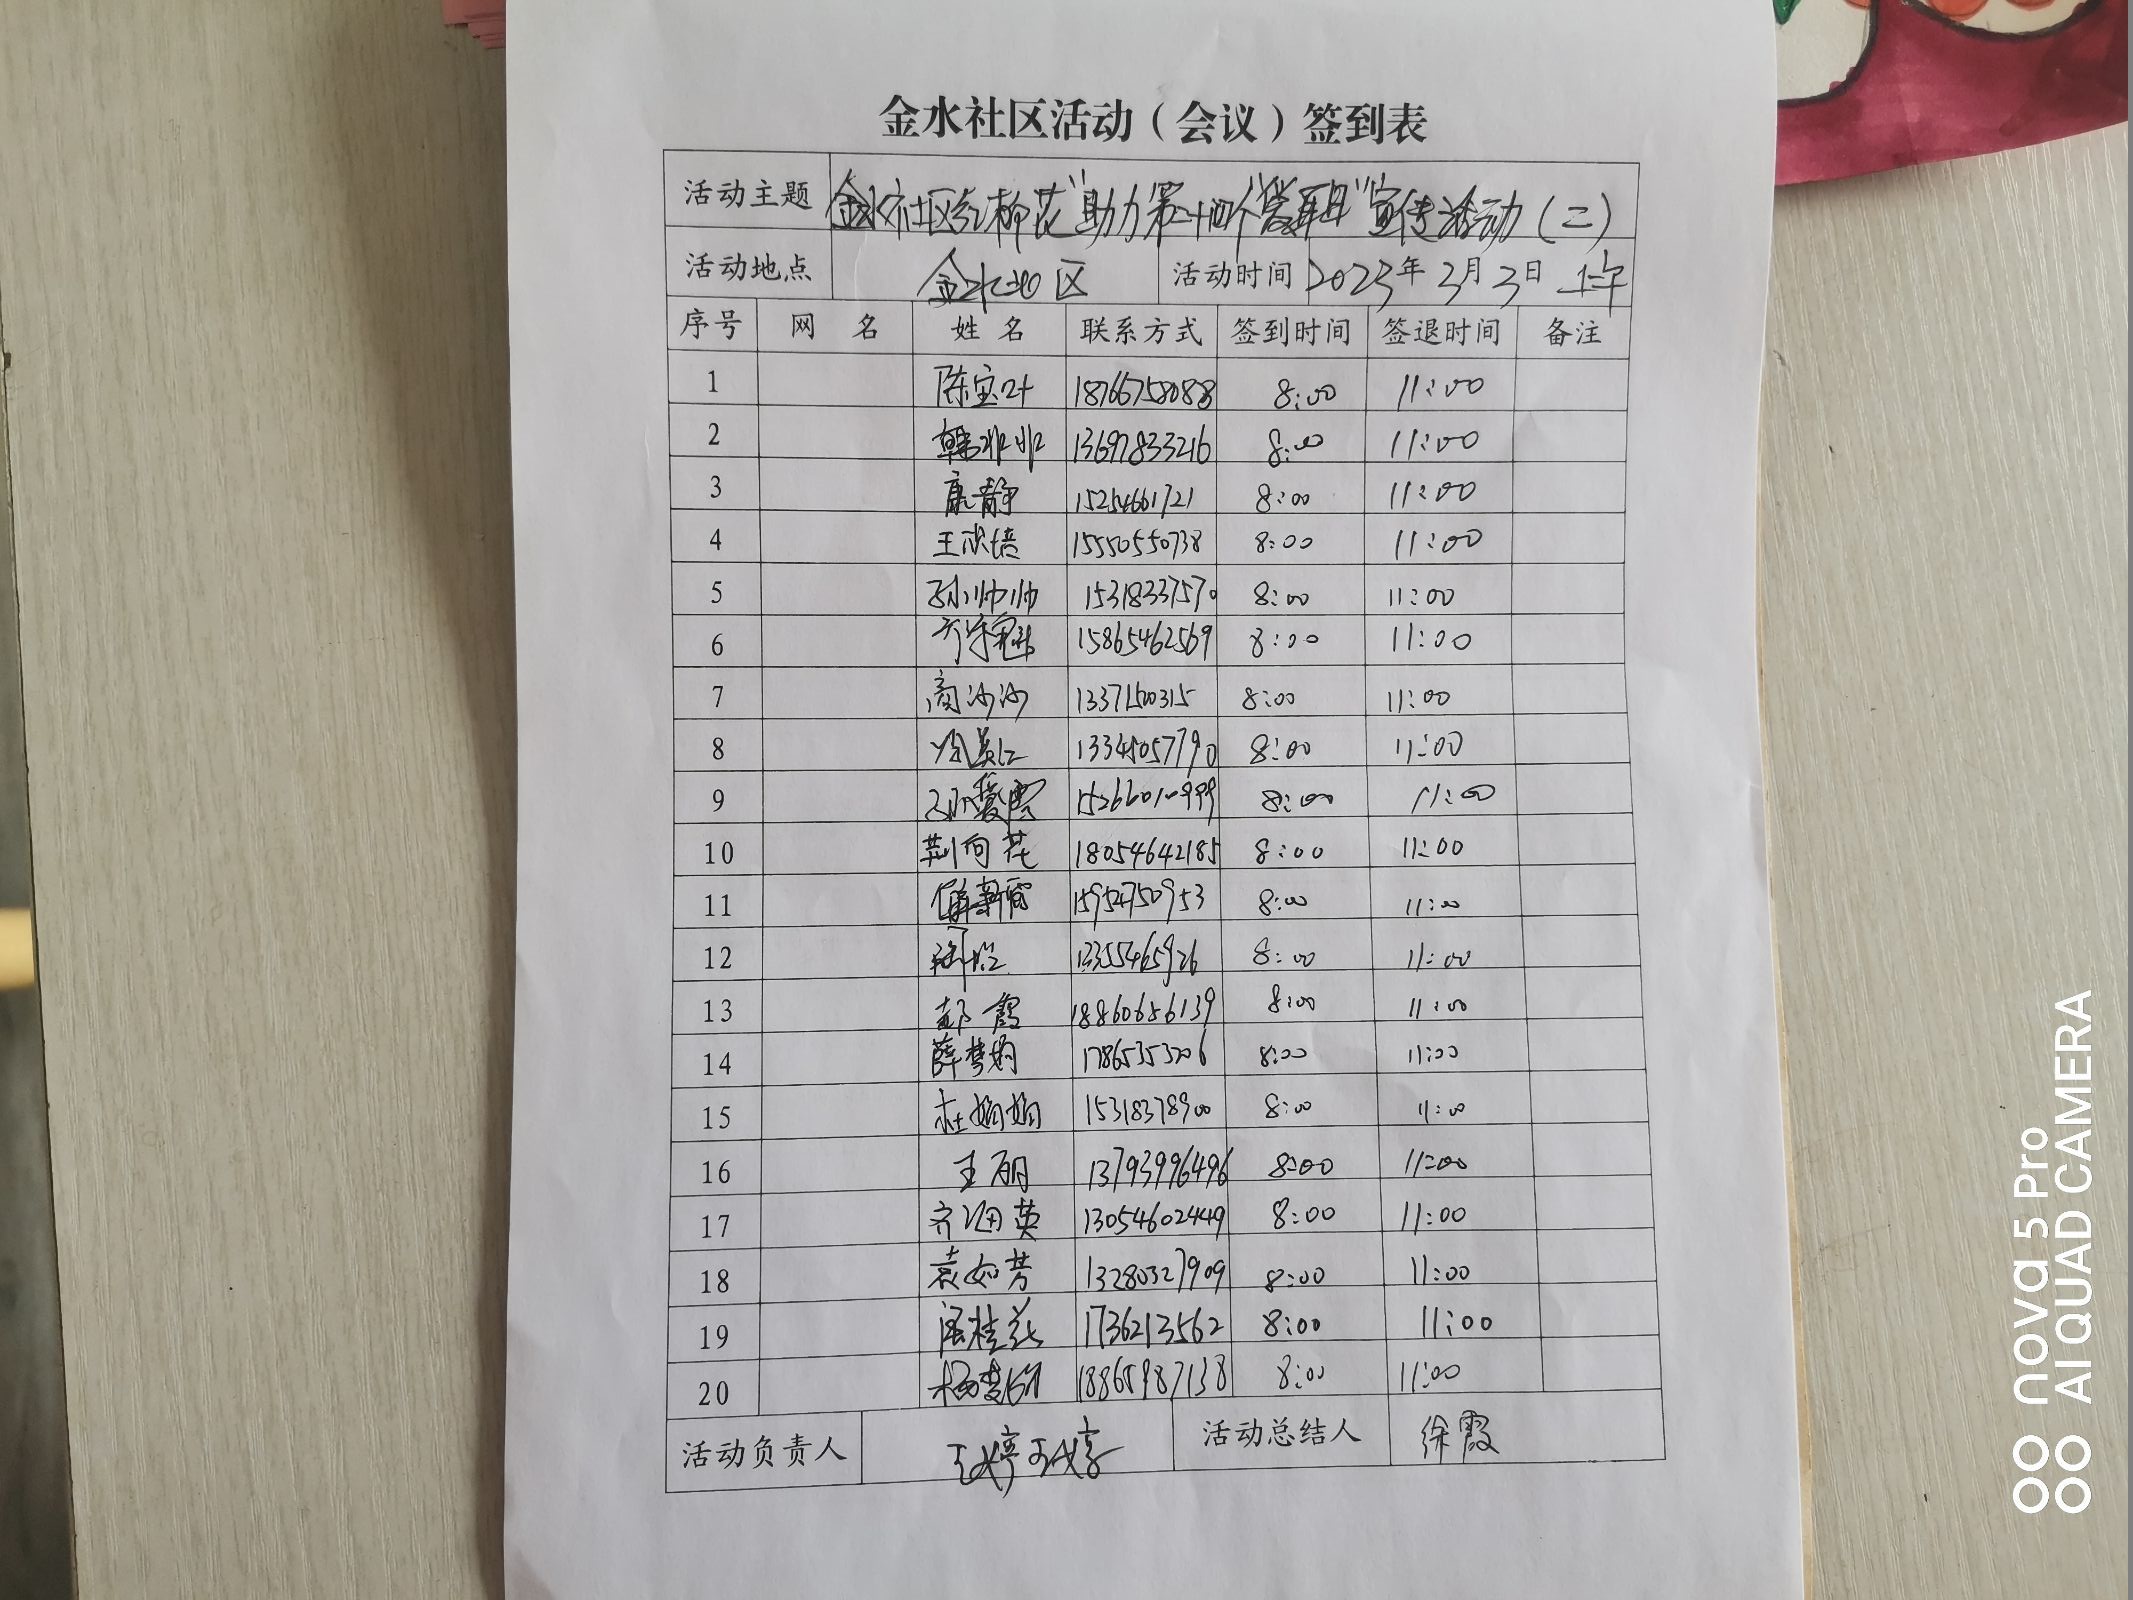 金水社区活动（会议）签到表
活动主题 金水社区红柳花"助力第二十四个"爱耳日"宣传活动（二）
活动地点 金水社区 活动时间 2023年3月3日 上午
序号 网 名 姓 名 联系方式 签到时间 签退时间 备注
1 陈宝叶 18766758088 8:00 11:00
2 韩非非 13697833216 8:00 11:00
3 康静 15254661721 8:00 11:00
4 王欣培 15550550738 8:00 11:00
5 孙帅帅 15318337570 8:00 11:00
6 15865462569 8:00 11:00
7 商沙沙 8:00 11:00
8 13345057790 8:00 11:00
9 8:00 11:00
10 荆向花 18054642185 8:00 11:00
11 15954750953 8:00 11:00
12 13355465926 8:00 11:00
13 彭霞 18860656139 8:00 11:00
14 薛梦娟 17865353206 8:00 11:00
15 杜娟娟 15318378900 8:00 11:00
16 王丽 13793996496 8:00 11:00
17 13054602449 8:00 11:00
18 袁如芳 13280327909 8:00 11:00
19 桂花 1736213562 8:00 11:00
20 18865987138 8:00 11:00
活动负责人 王婷婷 活动总结人 徐霞
nova 5 Pro
AI QUAD CAMERA